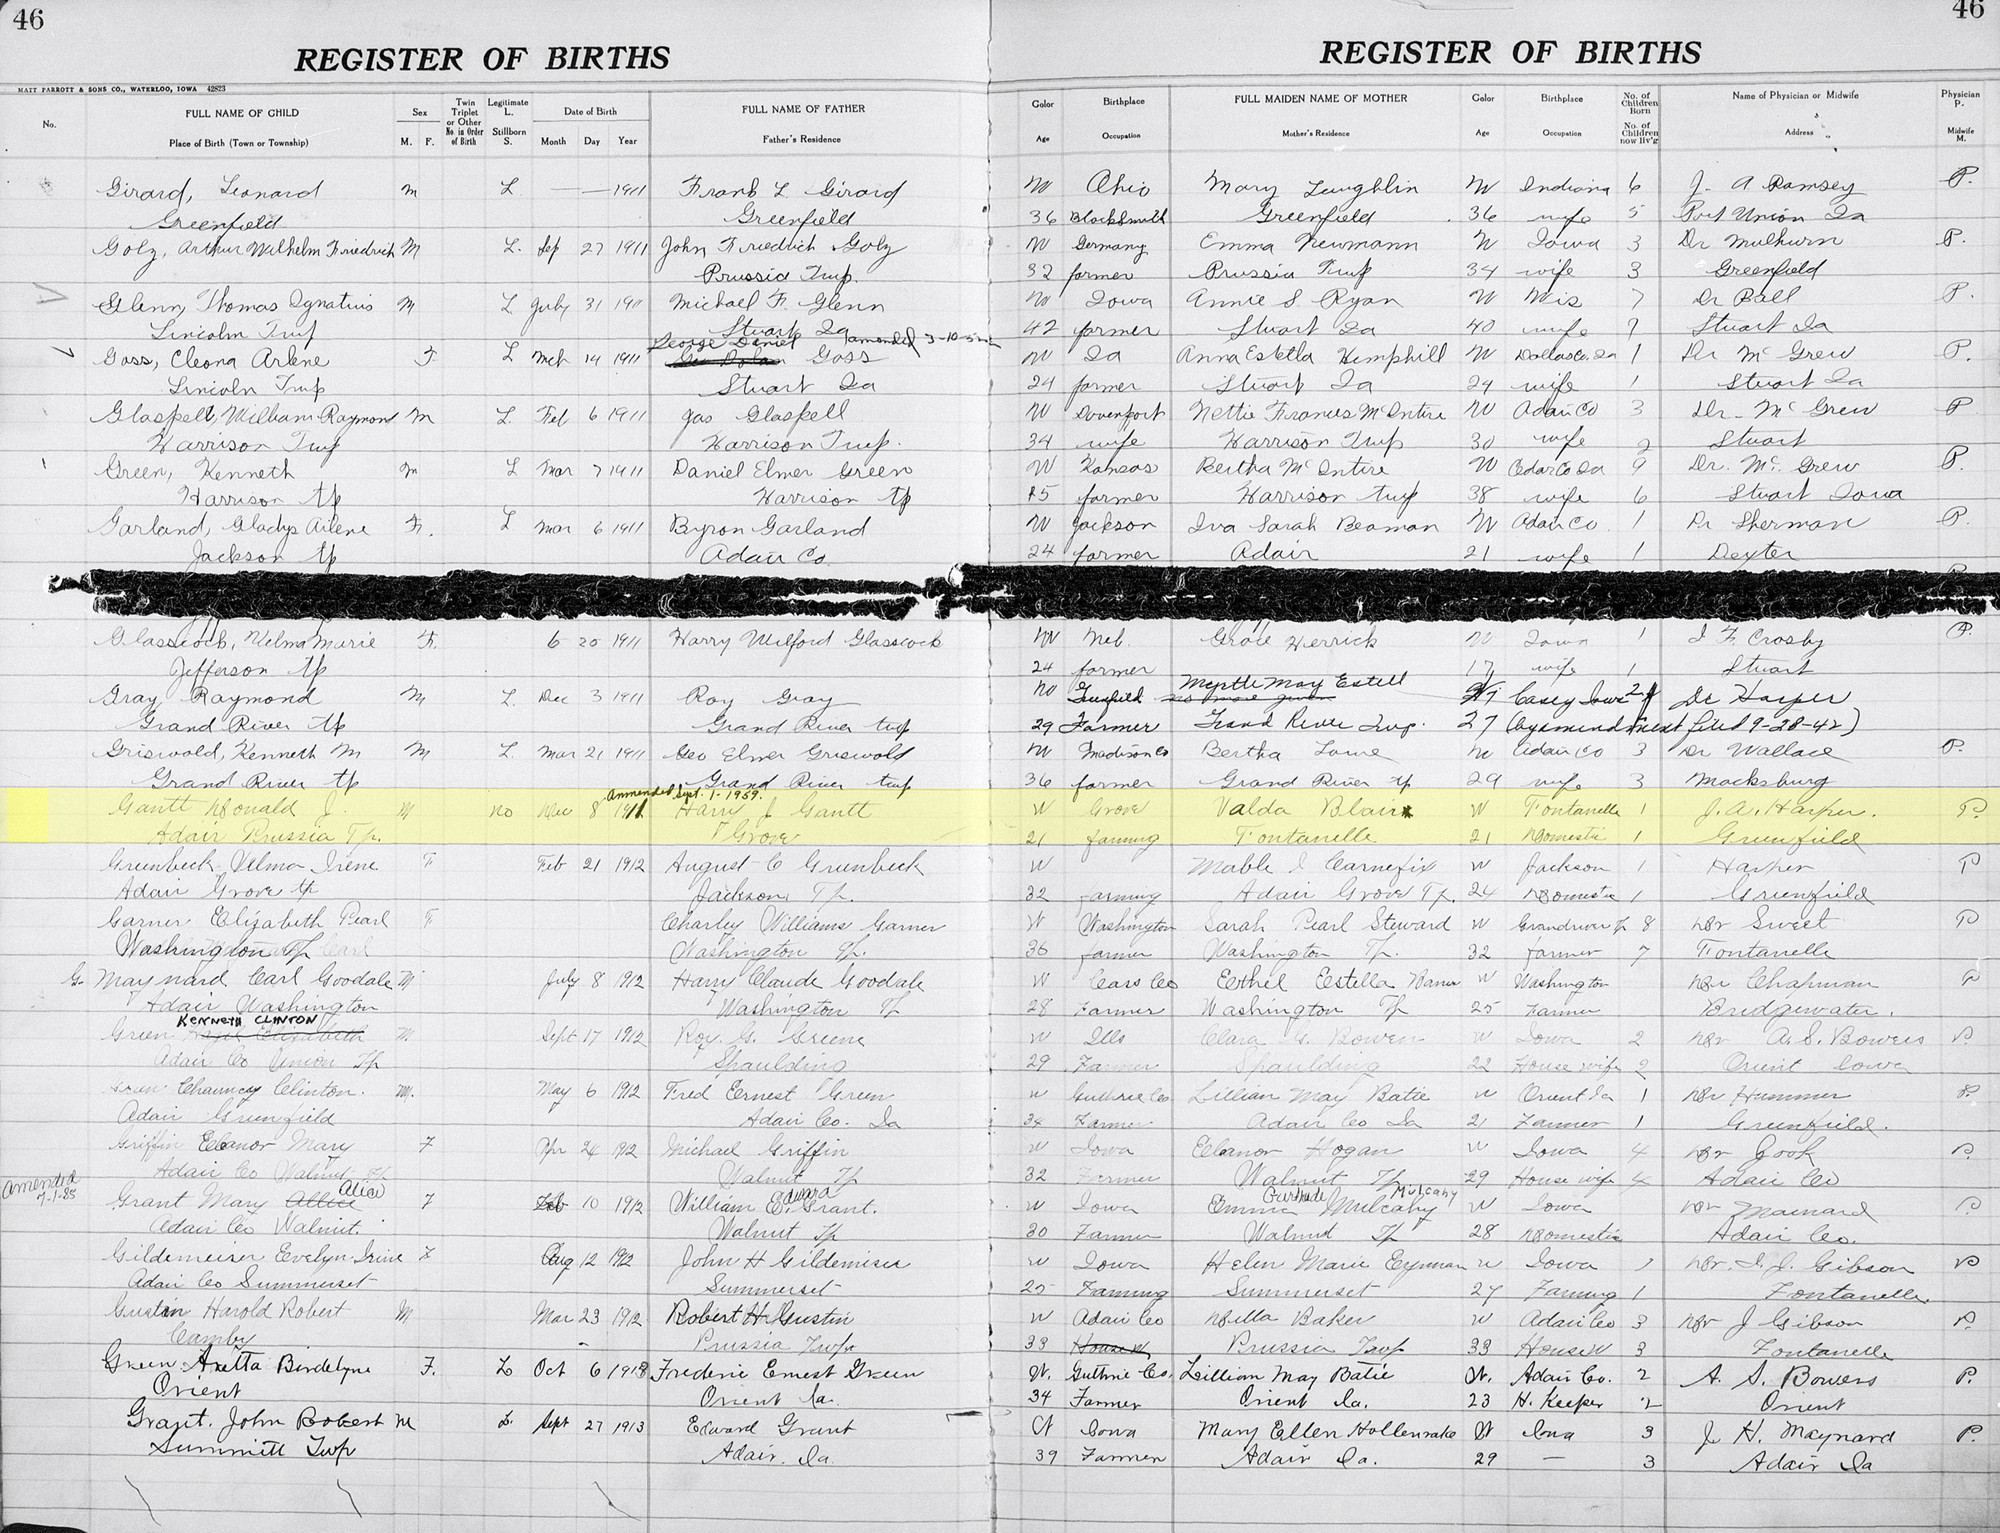 46
46
REGISTER OF BIRTHS
REGISTER OF BIRTHS
MATT PARROTT & SONS CO., WATERLOO, IOWA 42823
No.
FULL NAME OF CHILD
Place of Birth (Town or Township)
Sex
M. F.
Twin Triplet or Other No. in Order of Birth
Legitimate L.
Stillborn S.
Date of Birth
Month Day Year
FULL NAME OF FATHER
Father's Residence
Color
Age
Birthplace
Occupation
FULL MAIDEN NAME OF MOTHER
Mother's Residence
Color
Age
Birthplace
Occupation
No. of Children Born
No. of Children now liv'g
Name of Physician or Midwife
Address
Physician P.
Midwife M.
Girard, Leonard M L — — 1911 Frank L Girard W Ohio Mary Laughlin W Indiana 6 J. A Ramsey P.
Greenfield Greenfield 36 Blacksmith Greenfield 36 wife 5 Port Union Ia
Golz, Arthur Wilhelm Friedrich M L. Sep 27 1911 John Friedrich Golz W Germany Emma Newmann W Iowa 3 Dr Mulhern P.
Prussia Twp. 32 farmer Prussia Twp 34 wife 3 Greenfield
Glenn, Thomas Ignatius M L July 31 1911 Michael F. Glenn W Iowa Annie S Ryan W Wis 7 Dr Ball P.
Lincoln Twp Stuart Ia 42 farmer Stuart Ia 40 wife 7 Stuart Ia
George Daniel amended 3-10-
Goss, Cleona Arlene F L Mch 14 1911 Goss W Ia Anna Estella Hemphill W Dallas Co. Ia 1 Dr McGrew P.
Lincoln Twp Stuart Ia 24 farmer Stuart Ia 24 wife 1 Stuart Ia
Glaspell, William Raymond M L. Feb 6 1911 Jas Glaspell W Davenport Nettie Frances McIntire W Adair Co 3 Dr. McGrew P
Harrison Twp Harrison Twp. 34 wife Harrison Twp 30 wife 2 Stuart
Green, Kenneth M L Mar 7 1911 Daniel Elmer Green W Kansas Bertha McIntire W Cedar Co Ia 9 Dr. Mc. Grew P.
Harrison tp Harrison tp 45 farmer Harrison twp 38 wife 6 Stuart Iowa
Garland, Gladys Ailene F. L Mar 6 1911 Byron Garland W Jackson Iva Sarah Beaman W Adair Co. 1 Dr Sherman P.
Jackson tp Adair Co. 24 farmer Adair 21 wife 1 Dexter
Glasscock, Velma Marie F. 6 20 1911 Harry Wilford Glasscock W Neb. Grace Herrick W Iowa 1 J F. Crosby P.
Jefferson tp 24 farmer 17 wife 1 Stuart
Myrtle May Estell
Gray Raymond M L. Dec 3 1911 Roy Gray W Greenfield W Casey Iowa 2 Dr Harper
Grand River tp Grand River twp 29 Farmer Grand River Twp. 27 (Ammendment filed 9-28-42)
Griswold, Kenneth M M L. Mar 21 1911 Geo Elmer Griswold W Madison Co Bertha Lowe W Adair Co 3 Dr Wallace P.
Grand River tp Grand River twp 36 farmer Grand River tp 29 wife 3 Macksburg
Ammended Sept. 1-1959.
Gantt Donald J. M No Dec 8 1911 Harry J Gantt W Grove Valda Blair W Fontanelle 1 J. A. Harper. P.
Adair Prussia Tp. Grove 21 farming Fontanelle 21 Domestic 1 Greenfield
Greenbeck Velma Irene F Feb 21 1912 August C Greenbeck W Mable I Carnefix W Jackson 1 Harper P
Adair Grove tp Jackson Tp. 32 farming Adair Grove Tp. 24 Domestic 1 Greenfield
Garner Elizabeth Pearl F Charley Williams Garner W Washington Sarah Pearl Steward W Grandriver Tp 8 Dr Sweet P
Washington Tp Washington Tp. 36 farmer Washington Tp. 32 farmer 7 Fontanelle
G. Maynard Carl Goodale M July 8 1912 Harry Claude Goodale W Cass Co Ethel Estella W Washington Dr Chapman P
Adair Washington Washington Tp 28 Farmer Washington Tp 25 Farmer Bridgewater.
KENNETH CLINTON
Green M Sept 17 1912 Roy. G. Greene W Ills Clara G. Bowen W Iowa 2 Dr A. S. Bowers P.
Adair Co Union Tp Spaulding 29 Farmer Spaulding 22 House wife 2 Orient Iowa
Chauncey Clinton. M. May 6 1912 Fred Ernest Green W Guthrie Co Lillian May Batie W Orient Ia 1 Dr Hummer P.
Adair Greenfield Adair Co. Ia 34 Farmer Adair Co Ia 21 Farmer 1 Greenfield.
Griffin Eleanor Mary F Apr 24 1912 Michael Griffin W Iowa Eleanor Hogan W Iowa 4 Dr Gook P.
Adair Co Walnut Tp Walnut Tp 32 Farmer Walnut Tp 29 House wife 4 Adair Co
Amended 7-1-85
Alice Edward Gertrude Mulcahy
Grant Mary Allice F Feb 10 1912 William E. Grant. W Iowa Emma Mulcahy W Iowa Dr Mainard P
Adair Co Walnut. Walnut Tp 30 Farmer Walnut Tp 28 Domestic Adair Co.
Gildemeiser Evelyn Irine F Aug 12 1912 John H Gildemiser W Iowa Helen Marie Eyman W Iowa Dr. J. J. Gibson P
Adair Co Summerset Summerset 25 Farming Summerset 27 Farming 1 Fontanelle
Gustin Harold Robert M Mar 23 1912 Robert H Gustin W Adair Co Della Baker W Adair Co 3 Dr J Gibson P.
Camby Prussia Twp 33 House w Prussia Twp 33 House w 3 Fontanelle
Green Aretta Birdelyne F. L Oct 6 1913 Frederic Ernest Green W. Guthrie Co. Lillian May Batie W. Adair Co. 2 A. S. Bowers P.
Orient Orient Ia. 34 Farmer Orient Ia. 23 H. Keeper 2 Orient
Grant. John Robert M L. Sept 27 1913 Edward Grant W Iowa Mary Ellen Hollenrake W Iowa 3 J. H. Maynard P.
Summitt Twp Adair. Ia. 39 Farmer Adair Ia. 29 — 3 Adair Ia